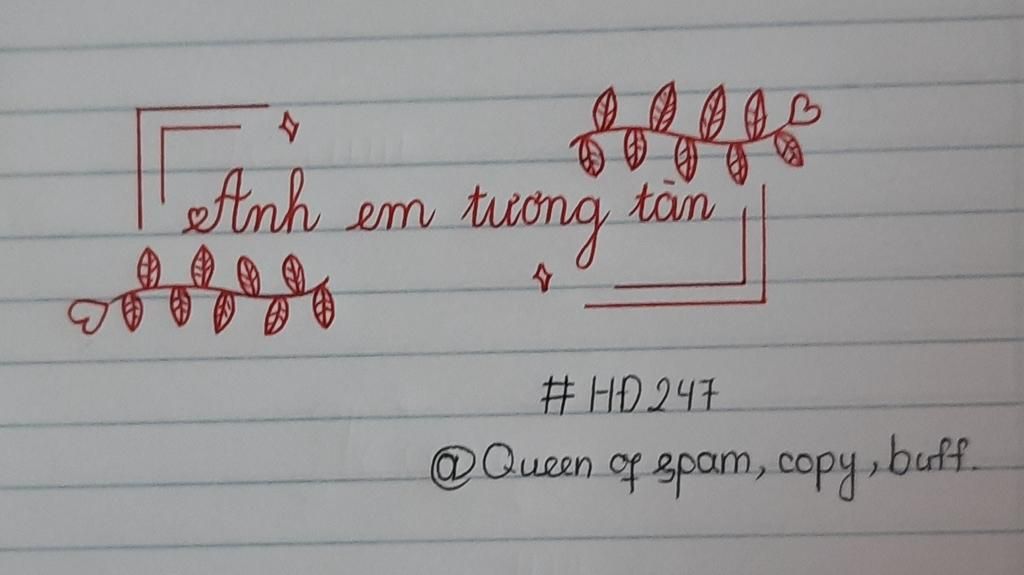 Anh em tương tàn
#HĐ247
@Queen of spam, copy, buff.